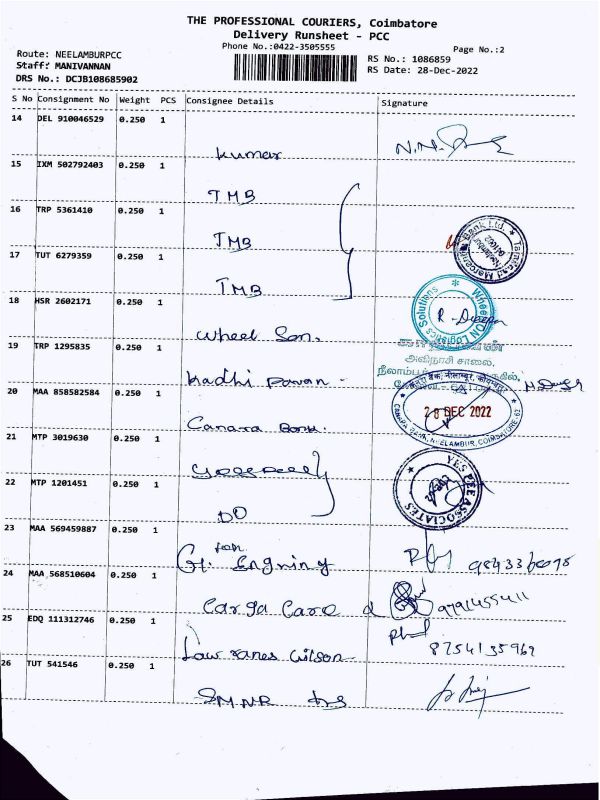 THE PROFESSIONAL COURIERS, Coimbatore
Delivery Runsheet - PCC
Phone No.:0422-3505555
Page No.:2
Route: NEELAMBURPCC
Staff: MANIVANNAN
DRS No.: DCJB108685902
RS No.: 1086859
RS Date: 28-Dec-2022
S No Consignment No Weight PCS Consignee Details Signature
14 DEL 910046529 0.250 1
Kumar
15 IXM 502792403 0.250 1
TMB
16 TRP 5361410 0.250 1
TMB
17 TUT 6279359 0.250 1
TMB
Tamilnad Mercantile Bank Ltd.
Neelambur
641062
18 HSR 2602171 0.250 1
Wheel Son.
WheelsON Logistics Solutions
R-Deepa
19 TRP 1295835 0.250 1
Kadhi Pavan -
அவிநாசி சாலை,
20 MAA 858582584 0.250 1
Canara Bank.
28 DEC 2022
CANARA BANK, NEELAMBUR, COIMBATORE-62
21 MTP 3019630 0.250 1
22 MTP 1201451 0.250 1
DO
YES PEE ASSOCIATES
23 MAA 569459887 0.250 1
Engring
24 MAA 568510604 0.250 1
Carga Care
9791455411
25 EDQ 111312746 0.250 1
Law ranes Wilson
8754135969
26 TUT 541546 0.250 1
SMNR